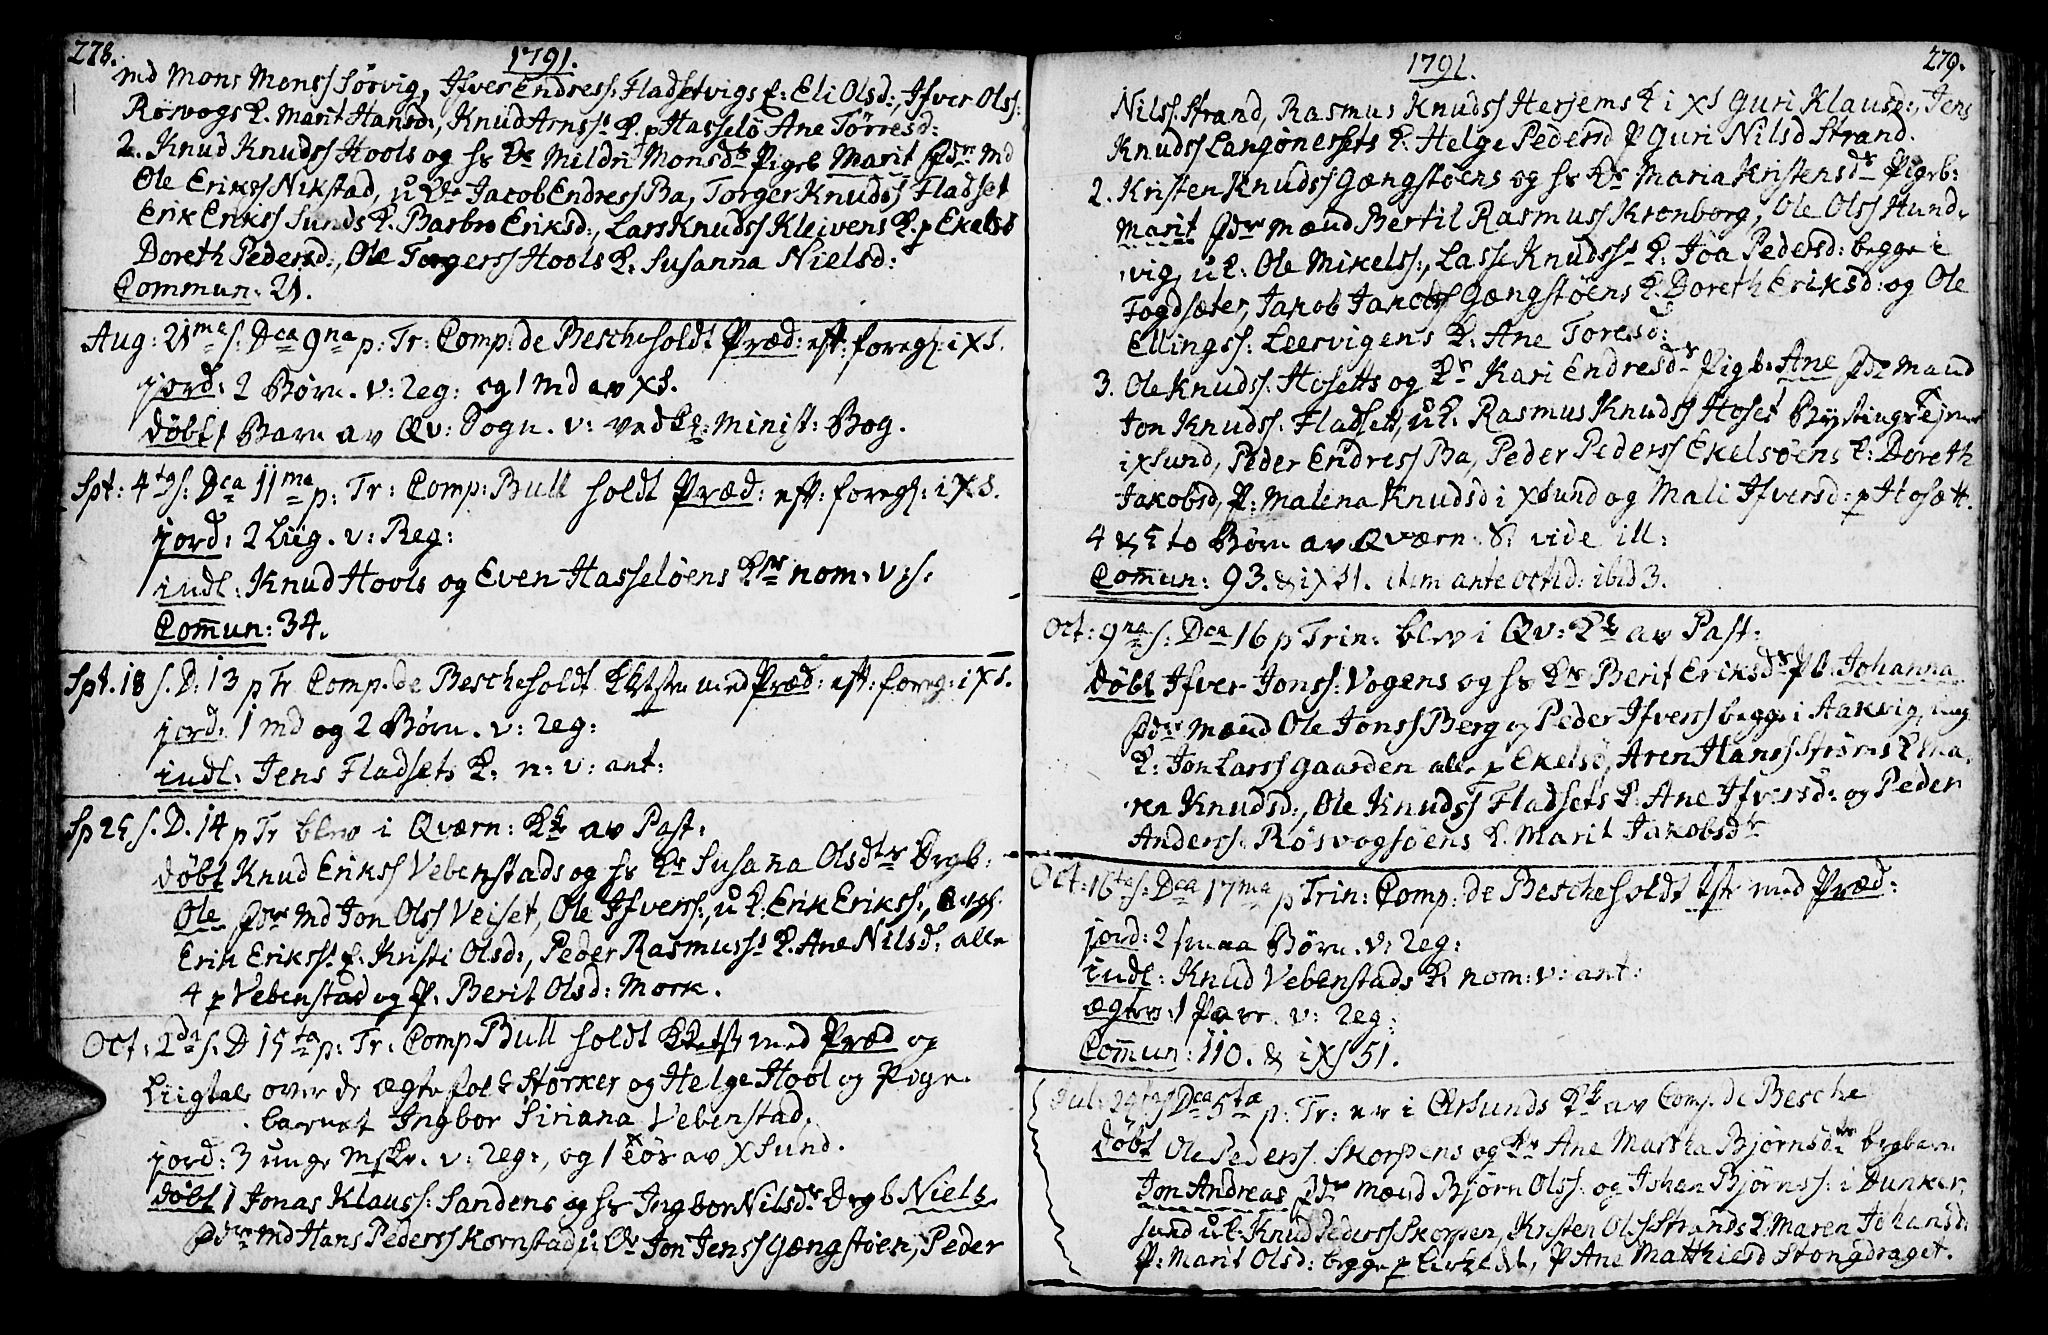 278.
1791.
md Mons Monss Sørvig, Ifver Endress: Fladsetvigs E: Eli Olsd:, Ifver Olss:
Røsvogs K. Marit Hansd:, Knud Arnss: K. p Hasselö Ane Törresd:
2. Knud Knudss Hools og hs Kr Mildri Monsdr Pigeb Marit Fdr md
Ole Erikss Nikstad, u Kr Jacob Endress Ba, Torger Knudss Fladset
Erik Erikss Sunds K. Barbro Eriksd:, Lars Knudss Kleivens K. p Ekelsö
Doreth Pedersd:, Ole Torgerss Hools K. Susanna Nielsd:
Commun: 21.
Aug: 21ma s: Dca 9na p: Tr: Comp: de Besche holdt Præd: eft: foreg: i XS.
jord: 2 Børn. v: Reg: og 1 md av XS.
döbt 1 Barn av Qv: Sogn. v: ved K: minist: Bog.
Spt: 4ta s: Dca 11ma p: Tr: Comp: Bull holdt Præd: eft: foreg: i XS.
jord: 2 Liig. v: Reg:
indl: Knud Hools og Even Hasselöens Kr nom: v: s.
Com̄un: 34.
Spt. 18 s. D: 13 p Tr Comp. de Besche holdt med Præd: eft: foreg: i XS.
jord: 1 md og 2 Børn. v: Reg:
indl: Jens Fladsets K. n: v: ant:
Sp 25 s. D. 14 p Tr blev i Qværn: Kk av Past:
döbt Knud Erikss Vebenstads og hs Kr Susana Olsdtr Drgb:
Ole Fdr md Jon Olss Veiset, Ole Ifverss:, u K: Erik Erikss:,
Erik Erikss: E. Kristi Olsd:, Peder Rasmuss: K. Ane Nilsd: alle
4 p Vebenstad og P. Berit Olsd: Mork.
Oct: 2da s: D 15ta p: Tr: Comp Bull holdt med Præd og
Liigtale over de ægtefolk Störker og Helge Hool og Pige
barnet Ingbor Siriana Vebenstad.
jord: 3 unge v: Reg:, og 1 av X Sund.
döbt 1 Jonas Klauss: Sandens og hs Ingbor Nilsdr Drgb Niels
Fdr md Hans Pederss Kornstad, u Kr Jon Jenss Gængstöen, Peder
1791.
279.
Nilss: Strand, Rasmus Knudss Herjems K i XS Guri Klausd:, Jens
Knudss Langönessets K. Helge Pedersd P Guri Nilsd Strand.
2. Kristen Knudss Gængstöens og hs Kr Maria Kristensdr Pigeb:
Marit Fdr mænd Bertil Rasmuss Kronborg, Ole Olss Hund-
vig, u K: Ole Mikelss:, Lasse Knudss: K: Joa Pedersd: begge i
Fogdsæter, Jakob Jakobss Gængstöens K. Doreth Eriksd: og Ole
Ellingss: Leervigens K. Ane Toresd:
3. Ole Knudss: Hosetts og Kr Kari Endresdr Pigb: Ane Fdr mænd
Jon Knudss: Fladsett, u K. Rasmus Knudss Hoset Bystings
i XSund, Peder Endress Ba, Peder Pederss Ekelsöens E: Doreth
Jakobsd, P: Malena Knudsd i XSund og Mali Ifversd: p Hosætt.
4 & 5 to Børn av Qværn: S: vide ill:
Com̄un: 93. & i XS 1. item ante octid: ibid 3.
Oct: 9na s: Dca 16 p Trin: blev i Qv: Kk av Past:
döbt Ifver Jonss: Vogens og hs Kr Berit Eriksdr P b. Johanna.
Fdr mænd Ole Jonss Berg og Peder Ifverss begge i Aakvig, ung
K: Jon Larss Gaarden alle p Ekelsö, Aren Hanss Ströms K Ma-
ren Knudsd:, Ole Knudss Fladsets K. Ane Ifversd: og Peder
Anderss: Rösvogsöens K. Marit Jakobsdr
Oct: 16ta s: Dca 17ma p Trin: Comp: de Besche holdt tst med Præd:
jord: 2 smaa Børn. v: Reg:
indl: Knud Vebenstads K. nom: v: ant:
ægtev: 1 Par. v: Reg:
Com̄un: 110. & i XS 51.
Jul: 24 s Dca 5ta p: Tr: er i Örsunds Kk av Comp. de Besche
döbt Ole Pederss. Skorpens og Kr Ane Martha Bjørnsdtr drgbarn
Jon Andreas Fdr mænd Bjørn Olss: og Johan Bjørnss: i Dunker-
sund u K: Knud Pederss Skorpen, Kristen Olss Strands K. Maren Johansd:
P: Marit Olsd: begge p, P Ane Matthiesd Stongdraget.